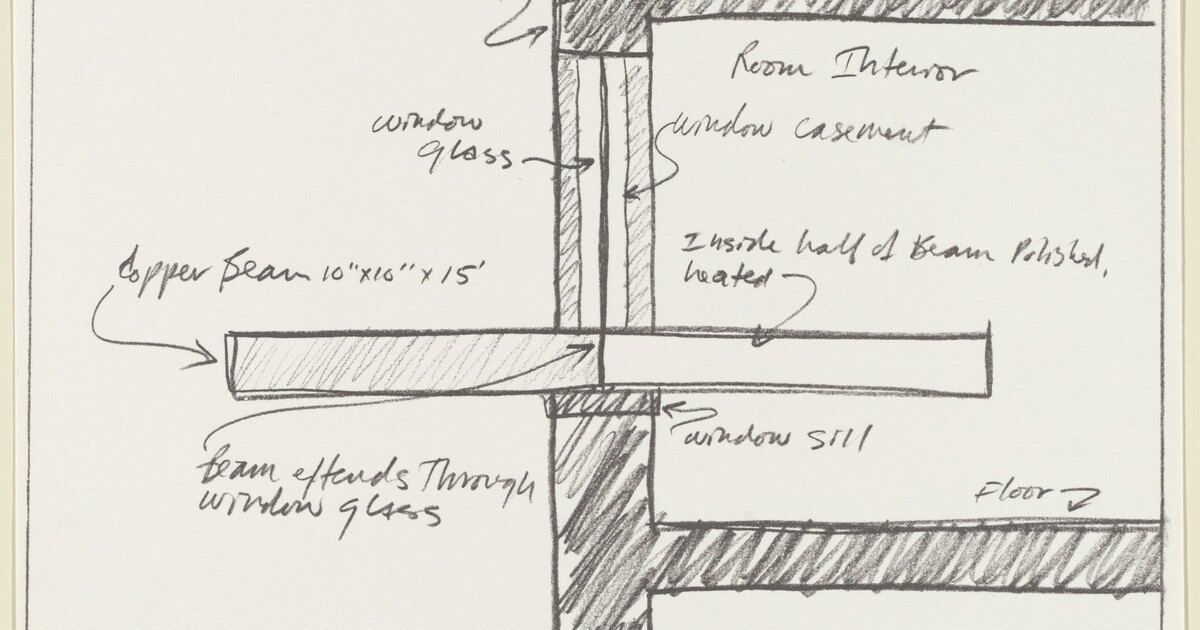 Room Interior
window
glass
window casement
Inside half of Beam Polished,
heated
Copper Beam 10"x10" x 15'
window sill
Beam extends Through
window glass
Floor